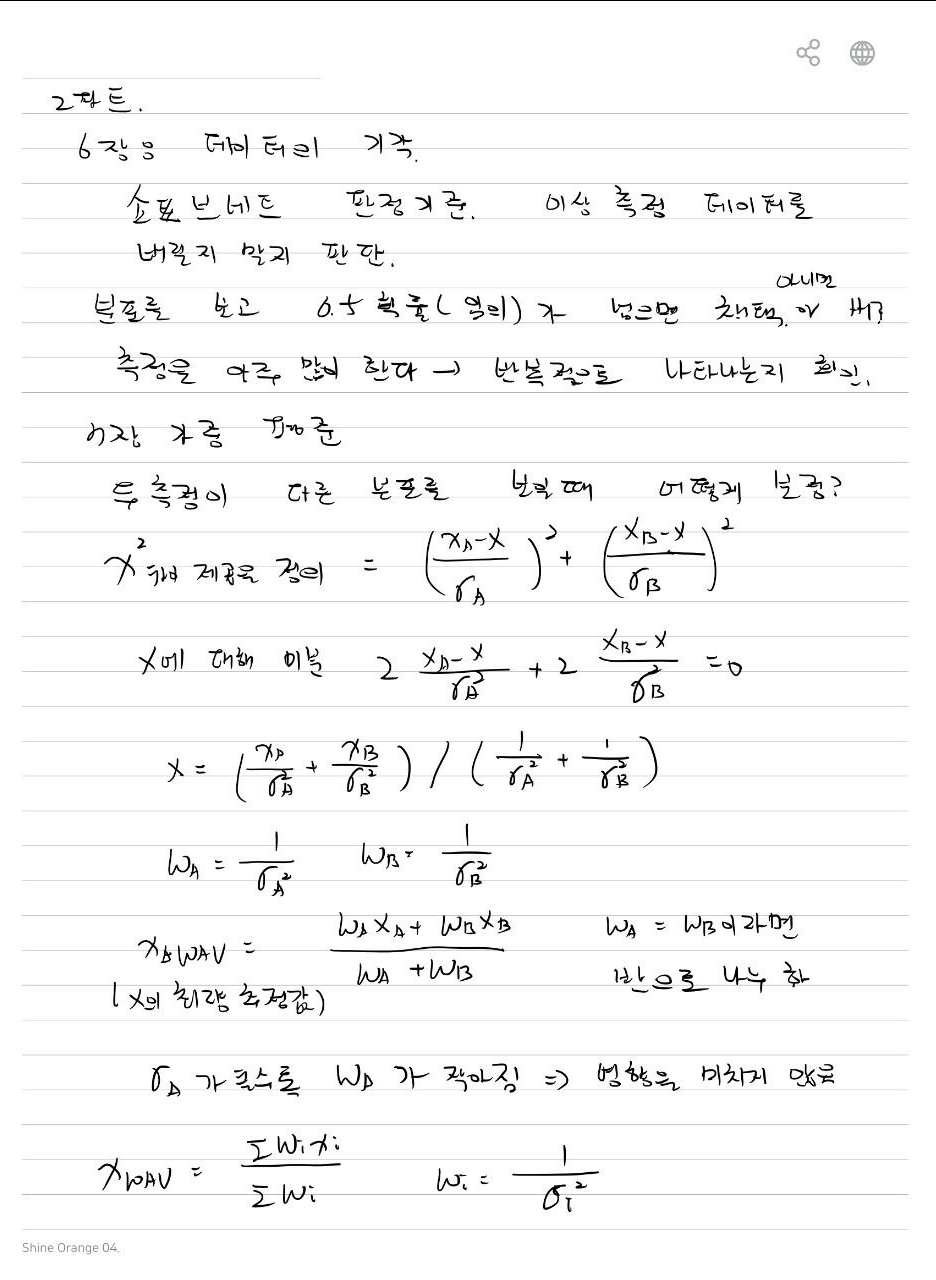 2파트.
6장은 데이터의 기각.
쇼표브네트 판정기준. 이상 측정 데이터를
버릴지 말지 판단.
분포를 보고 0.5 확률(임의)가 넘으면 채택, 아니면 버?
측정을 아주 많이 한다 → 반복적으로 나타나는지 확인.
7장 가중 평균
두 측정이 다른 분포를 보일 때 어떻게 분석?
χ² 제곱을 정의 = (x_A-X / σ_A)² + (x_B-X / σ_B)²
X에 대해 미분 2 x_A-X / σ_A² + 2 x_B-X / σ_B² = 0
X = (x_A / σ_A² + x_B / σ_B²) / (1 / σ_A² + 1 / σ_B²)
w_A = 1 / σ_A² w_B = 1 / σ_B²
w_A x_A + w_B x_B / w_A + w_B w_A = w_B이라면
(X의 최량 추정값) 반으로 나누
σ_A가 클수록 w_A가 작아짐 ⇒ 영향을 미치지 않음
x_WAV = Σw_i x_i / Σw_i w_i = 1 / σ_i²
Shine Orange 04.